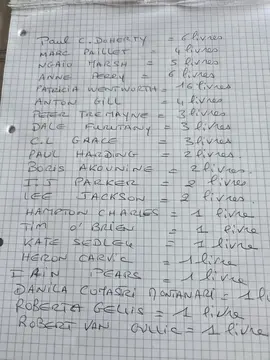 Paul C. DOHERTY = 6 livres
MARC PAILLET = 4 livres
NGAIO MARSH = 5 livres
ANNE PERRY = 6 livres
PATRICIA WENTWORTH = 16 livres
ANTON GILL = 4 livres
PETER TREMAYNE = 3 livres
DALE FURUTANY = 3 livres
C.L GRACE = 3 livres
PAUL HARDING = 2 livres
BORIS AKOUNINE = 2 livres
I J PARKER = 2 livres
LEE JACKSON = 2 livres
HAMPTON CHARLES = 1 livre
TIM O'BRIEN = 1 livre
KATE SEDLEY = 1 livre
HERON CARVIC = 1 livre
IAIN PEARS = 1 livre
DANILA COMASTRI MONTANARI = 1 l
ROBERTA GELLIS = 1 livre
ROBERT VAN GULLIC = 1 livre